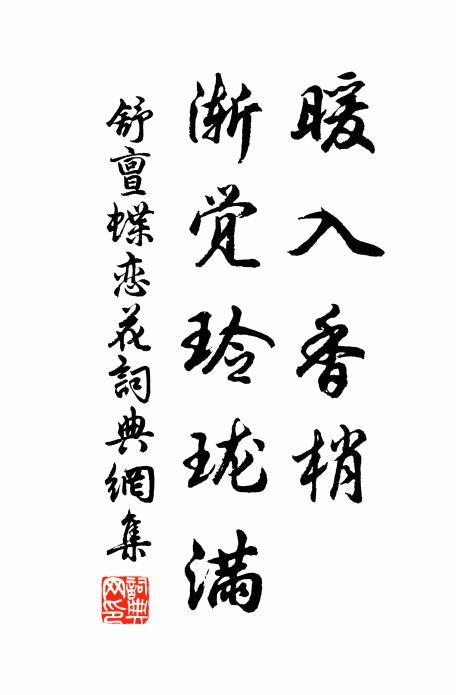 暖入香梢
渐觉玲珑满
舒亶蝶恋花詞典網集
詞典网印